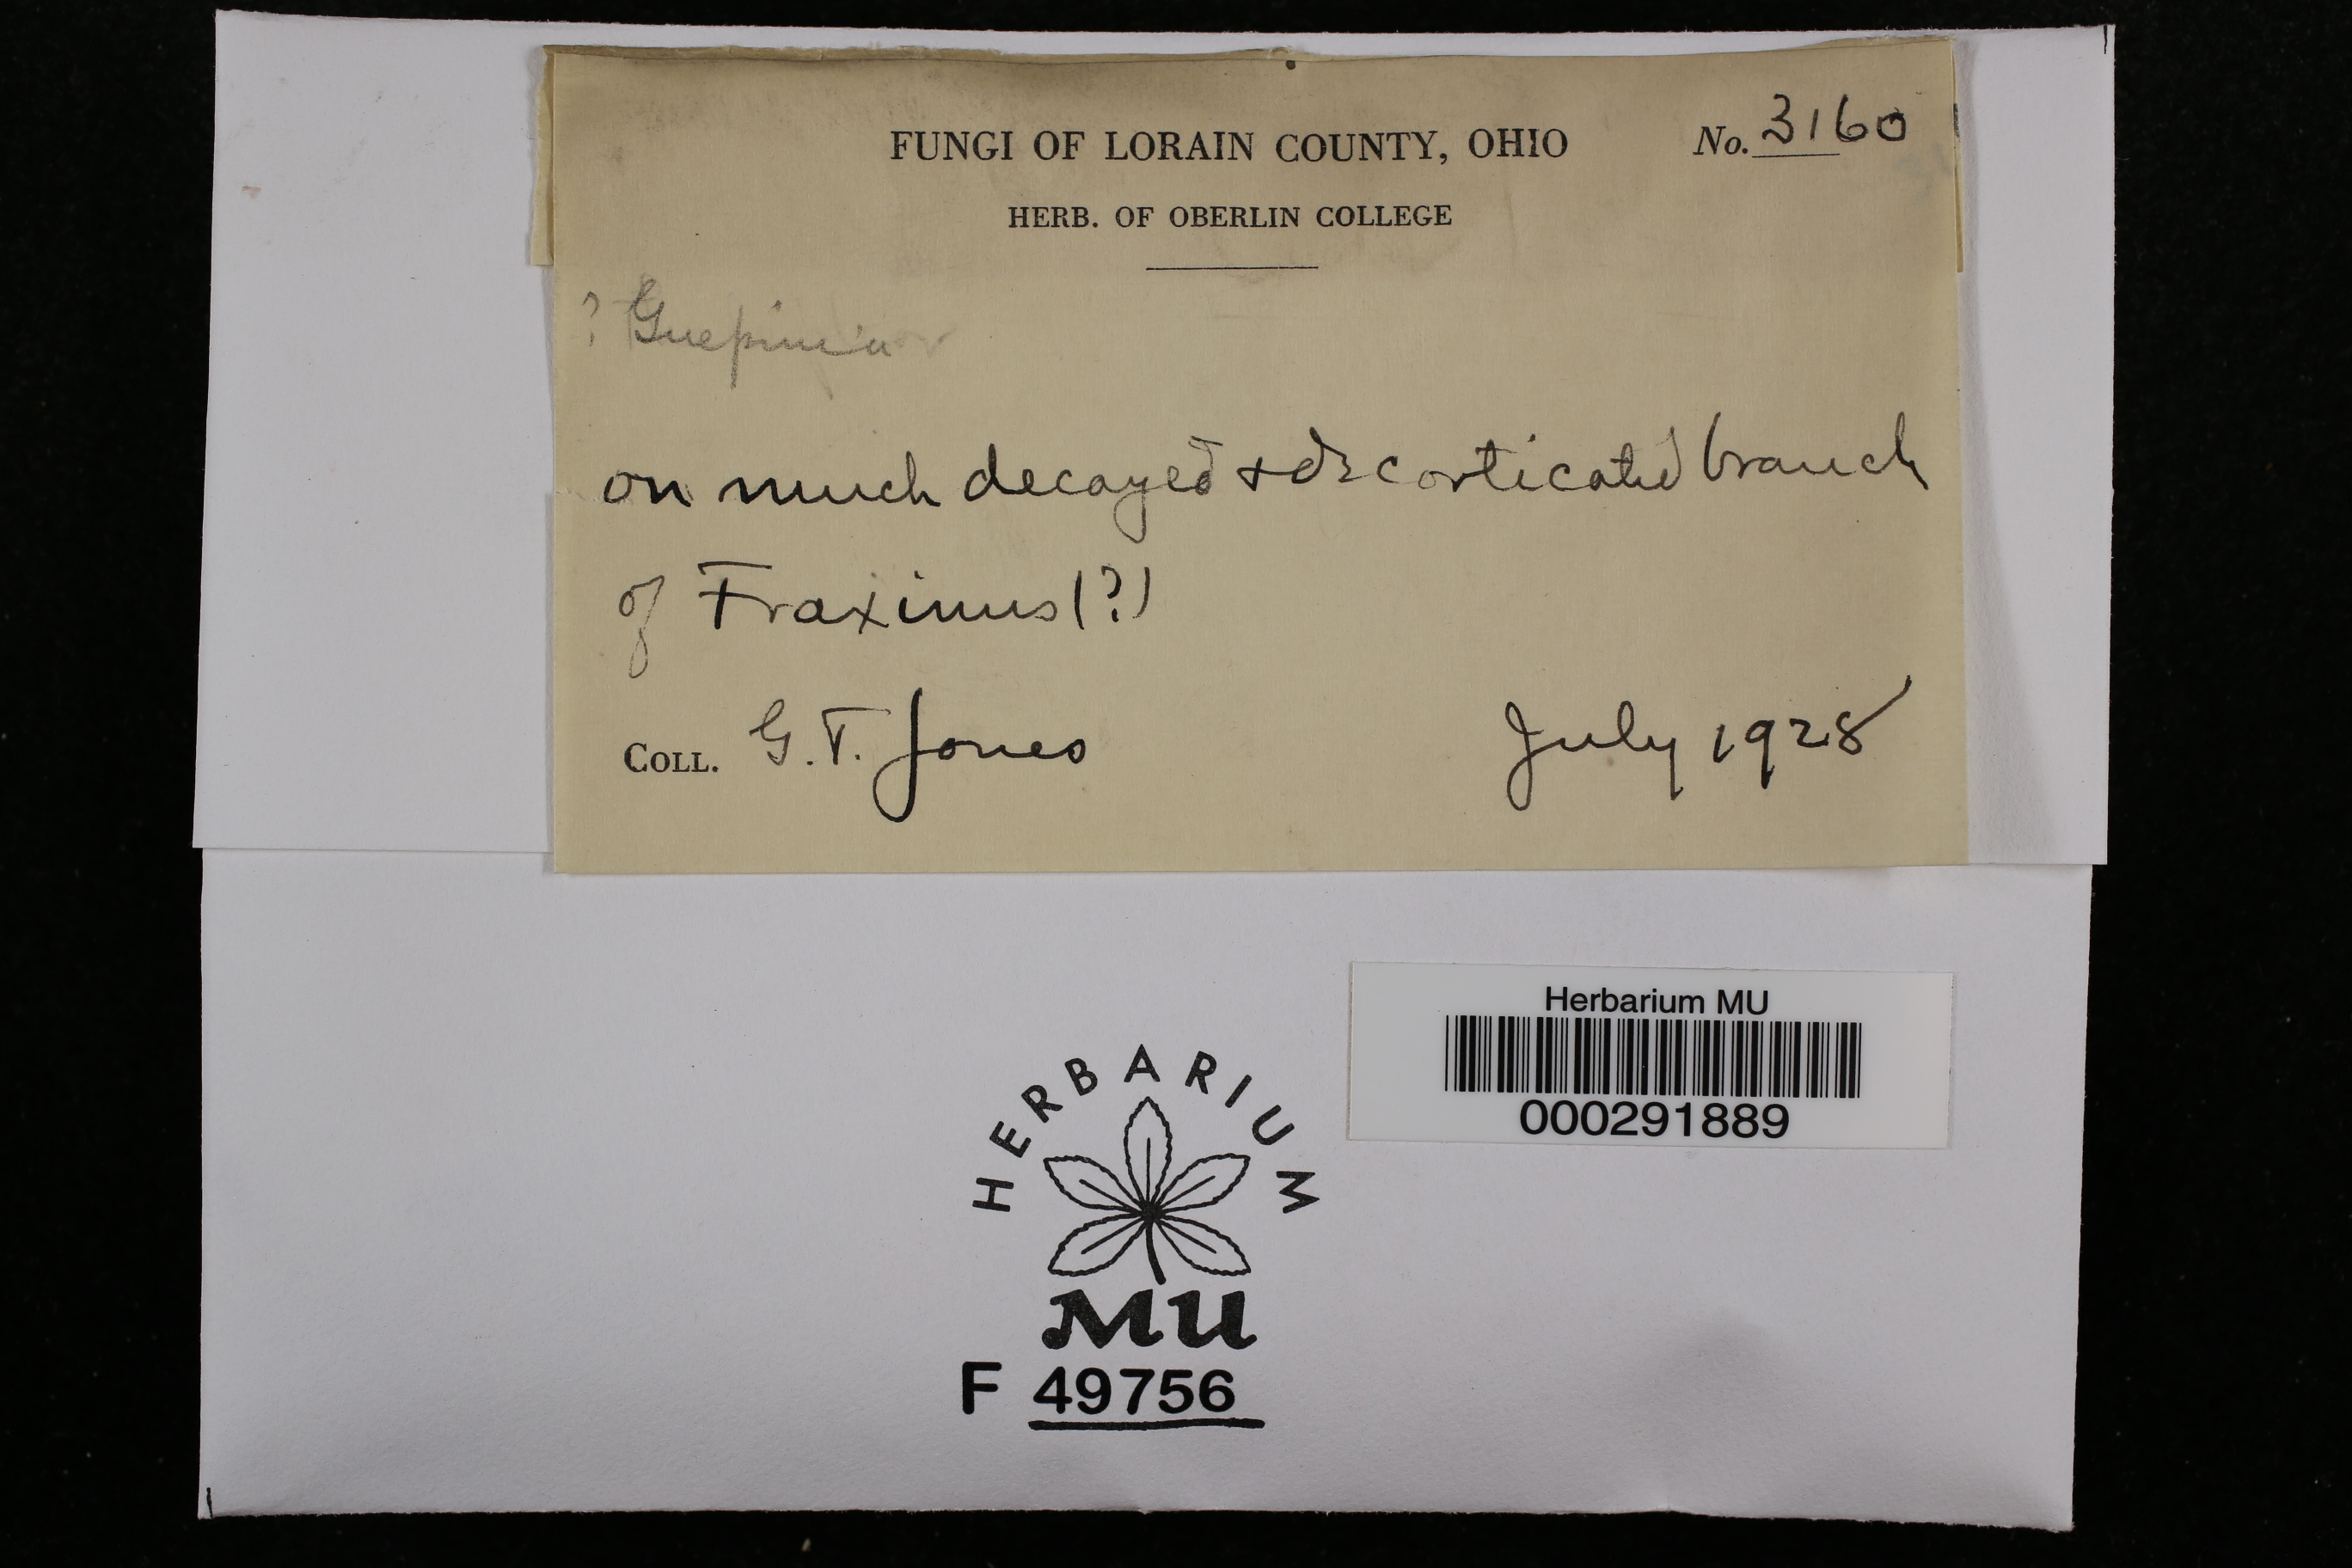 FUNGI OF LORAIN COUNTY, OHIO No. 3160
HERB. OF OBERLIN COLLEGE
? Guepinia
on much decayed + decorticated branch
of Fraxinus (?)
COLL. G.T. Jones July 1928
Herbarium MU
000291889
HERBARIUM
MU
F 49756